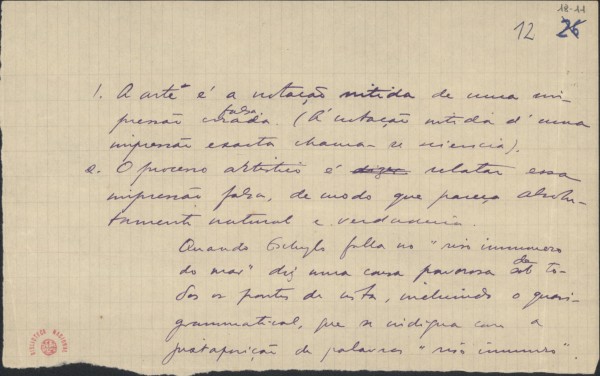 18-44
12 26
1. A arte é a notação nitida de uma im-
pressão errada. falsa (Á notação nitida d'uma
impressão exacta chama-se sciencia).
2. O processo artistico é relatar essa
impressão falsa, de modo que pareça absolu-
tamente natural e verdadeira.
Quando Eschylo falla no "riso innumero
do mar" diz uma cousa pavorosa de sob to-
dos os pontos de vista, incluindo o quasi-
grammatical, que se indigna com a
juxtaposição de palavras "riso innumero".
BIBLIOTECA NACIONAL